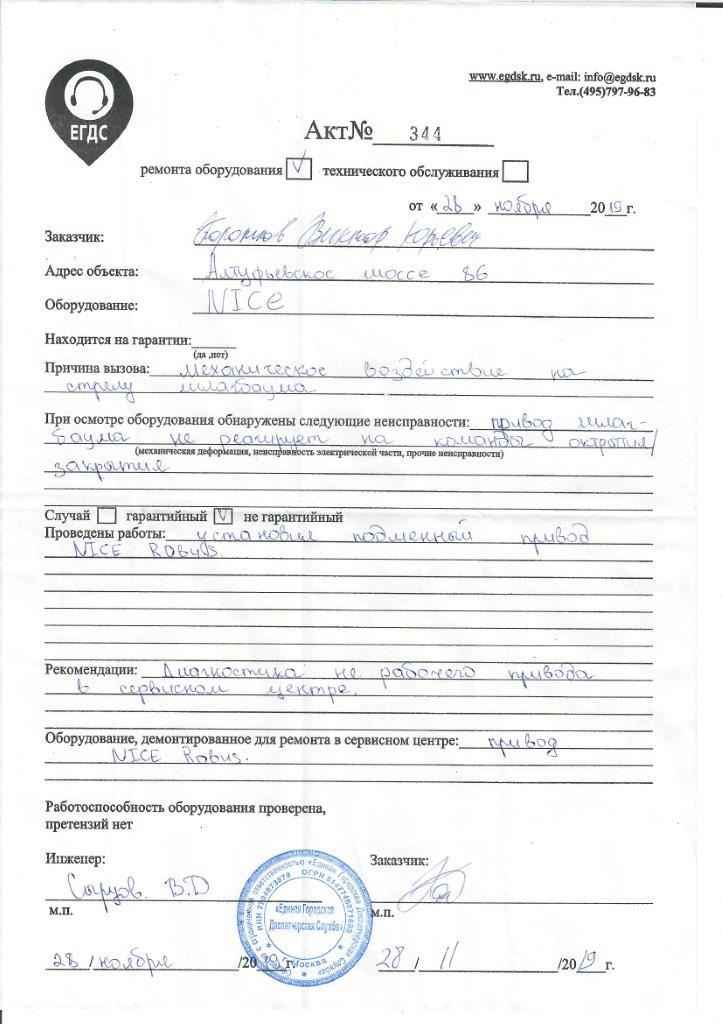 ЕГДС
www.egdsk.ru, e-mail: info@egdsk.ru
Тел.(495)797-96-83
Акт№ 344
ремонта оборудования V технического обслуживания
от «28» ноября 2019г.
Заказчик: Виктор Юрьевич
Адрес объекта: Алтуфьевское шоссе 86
Оборудование: NICE
Находится на гарантии:
(да ,нет)
Причина вызова: механическое воздействие на
стрелу шлагбаума
При осмотре оборудования обнаружены следующие неисправности: привод шлаг-
баума не реагирует на команды октрытия/
(механическая деформация, неисправность электрической части, прочие неисправности)
закрытия
Случай гарантийный V не гарантийный
Проведены работы: установил подменный привод
NICE Robus.
Рекомендации: Диагностика не рабочего привода
в сервисном центре.
Оборудование, демонтированное для ремонта в сервисном центре: привод
NICE Robus.
Работоспособность оборудования проверена,
претензий нет
Инженер: Заказчик:
Сырцов. В.Д
м.п. м.п.
«Единая Городская
Диспетчерская Служба»
Москва
28 / ноября /2019 г. 28 / 11 /2019 г.